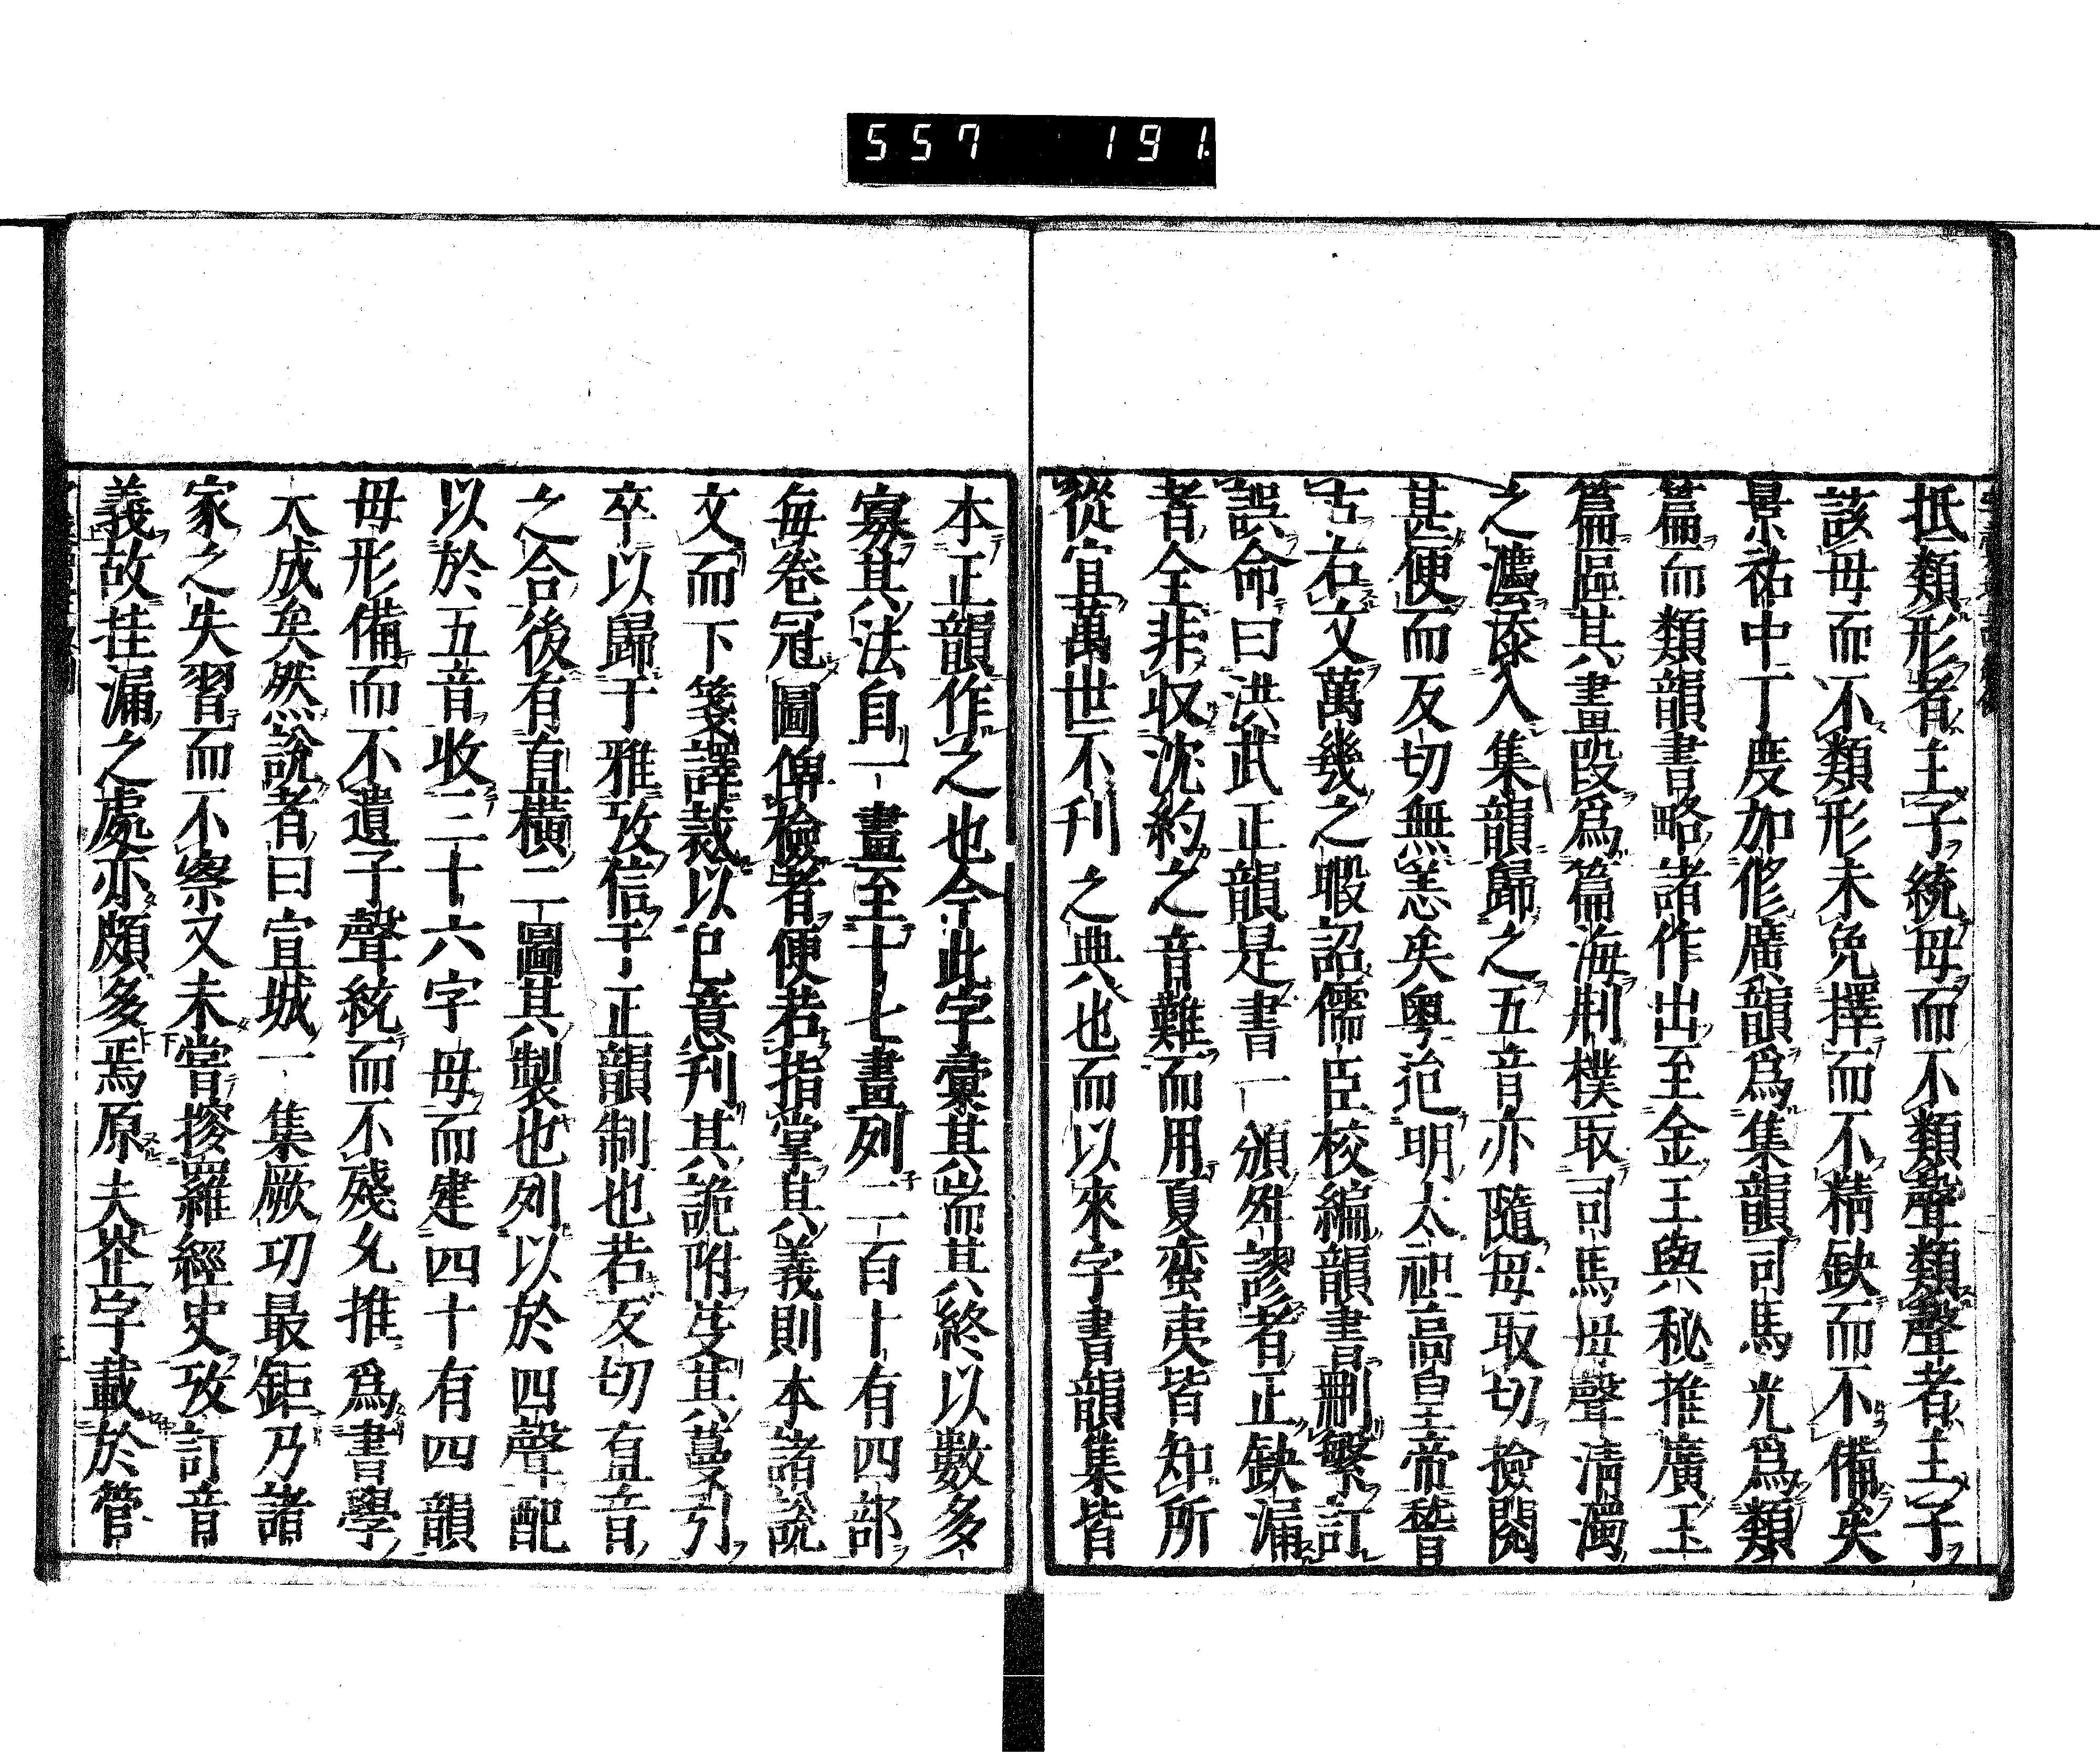 557 191
抵類形者主子統母而不類聲類聲者主子
該母而不類形未免擇而不精缺而不備矣
景祐中丁度加修廣韻爲集韻司馬光爲類
篇而類韻書略諸作出至金王與秘推廣玉
篇區其畫段爲篇海荆樸取司馬母聲清濁
之濃添入集韻歸之五音亦隨母取切撿閱
甚便而反切無恙矣粤迨明太祀高皇帝暬
古右文萬幾之暇詔儒臣校編韻書刪繁訂
誤命曰洪武正韻是書一頒舛謬者正缺漏
者全非収沈約之音難而用夏蛮夷皆知所
從宜萬世不刋之典也而以來字書韻集皆
本正韻作之也今此字彙其耑其終以數多
寡其法自一畫至十七畫列二百十有四部
毎卷冠圖俾檢者便若指掌其義則本諸説
文而下箋譯裁以已意刋其詭附芟其蔓引
卒以歸于雅攷信于正韻制也若反切直音
之合後有直横二圖其製也列以於四聲配
以於五音收三十六字母而建四十有四韻
毋形備而不遺子聲統而不殘允推爲書學
大成矣然説者曰宣城一集厥功最鉅乃諸
家之失習而不察又未嘗搜羅經史攷訂音
義故挂漏之處亦頗多焉原夫㱏字載於管